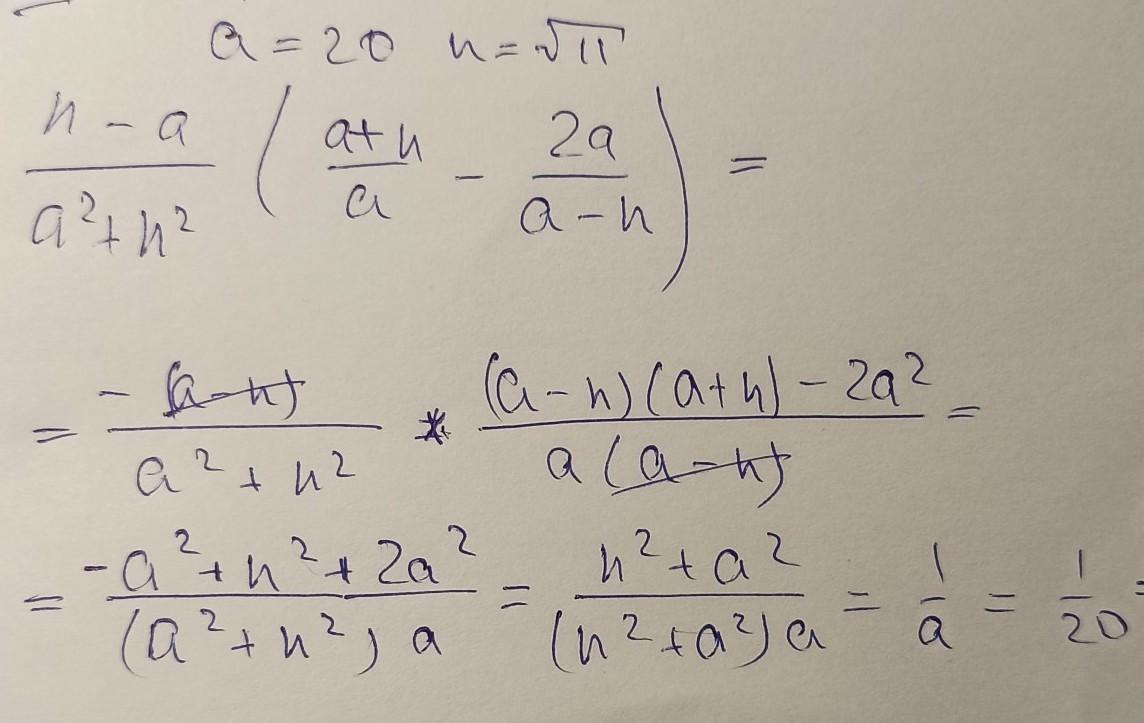 a = 20 n = √11
n - a / a² + n² ( a + n / a - 2a / a - n ) =
= - (a - n) / a² + n² * (a - n)(a + n) - 2a² / a (a - n) =
= -a² + n² + 2a² / (a² + n²) a = n² + a² / (n² + a²) a = 1 / a = 1 / 20 =